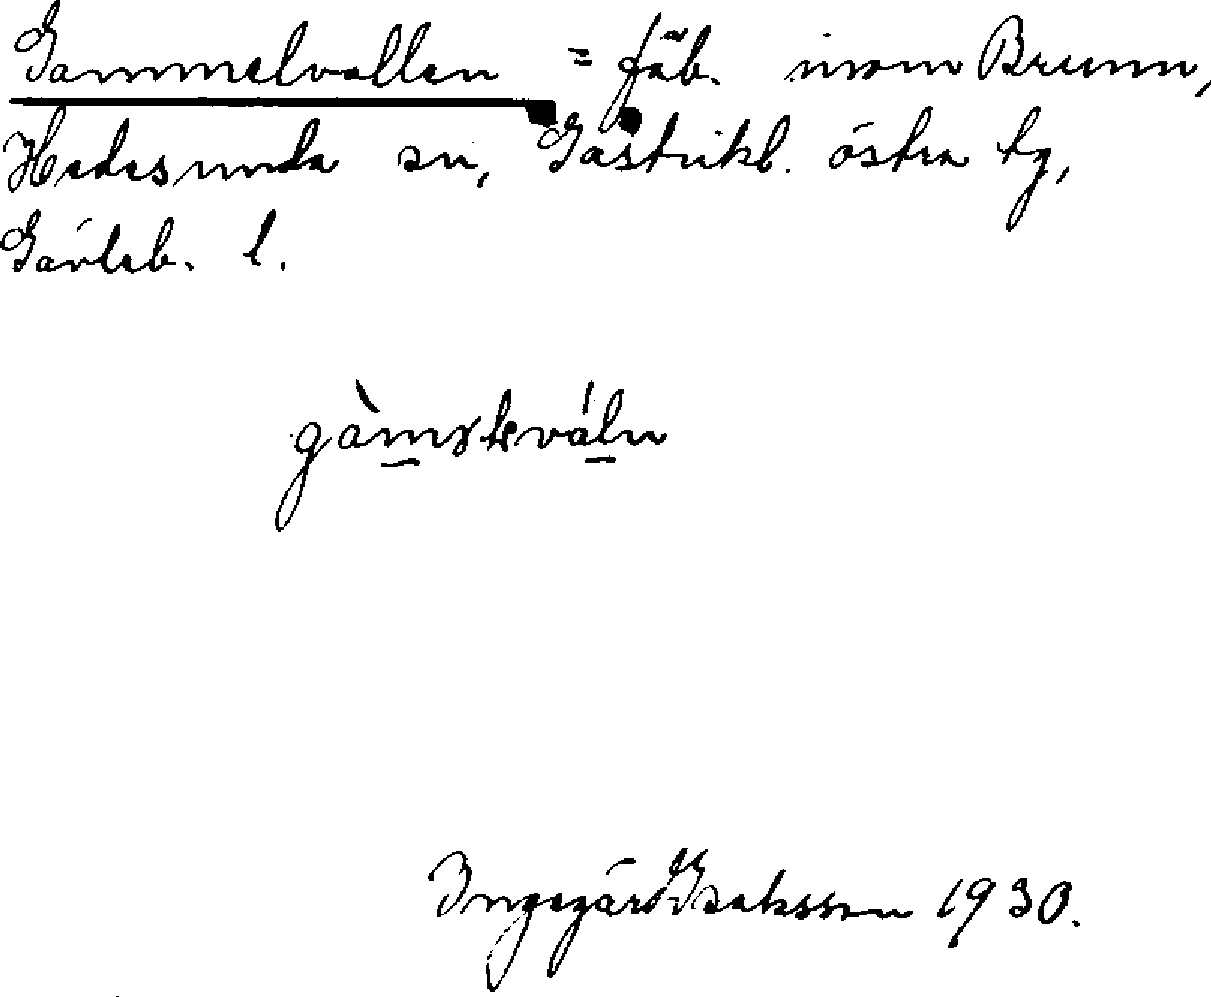 Gammelvallen = fäb. inom Brunn,
Hedesunda sn, Gästrikl. östra tg,
Gävleb. l.
Ingegärd Isaksson 1930.